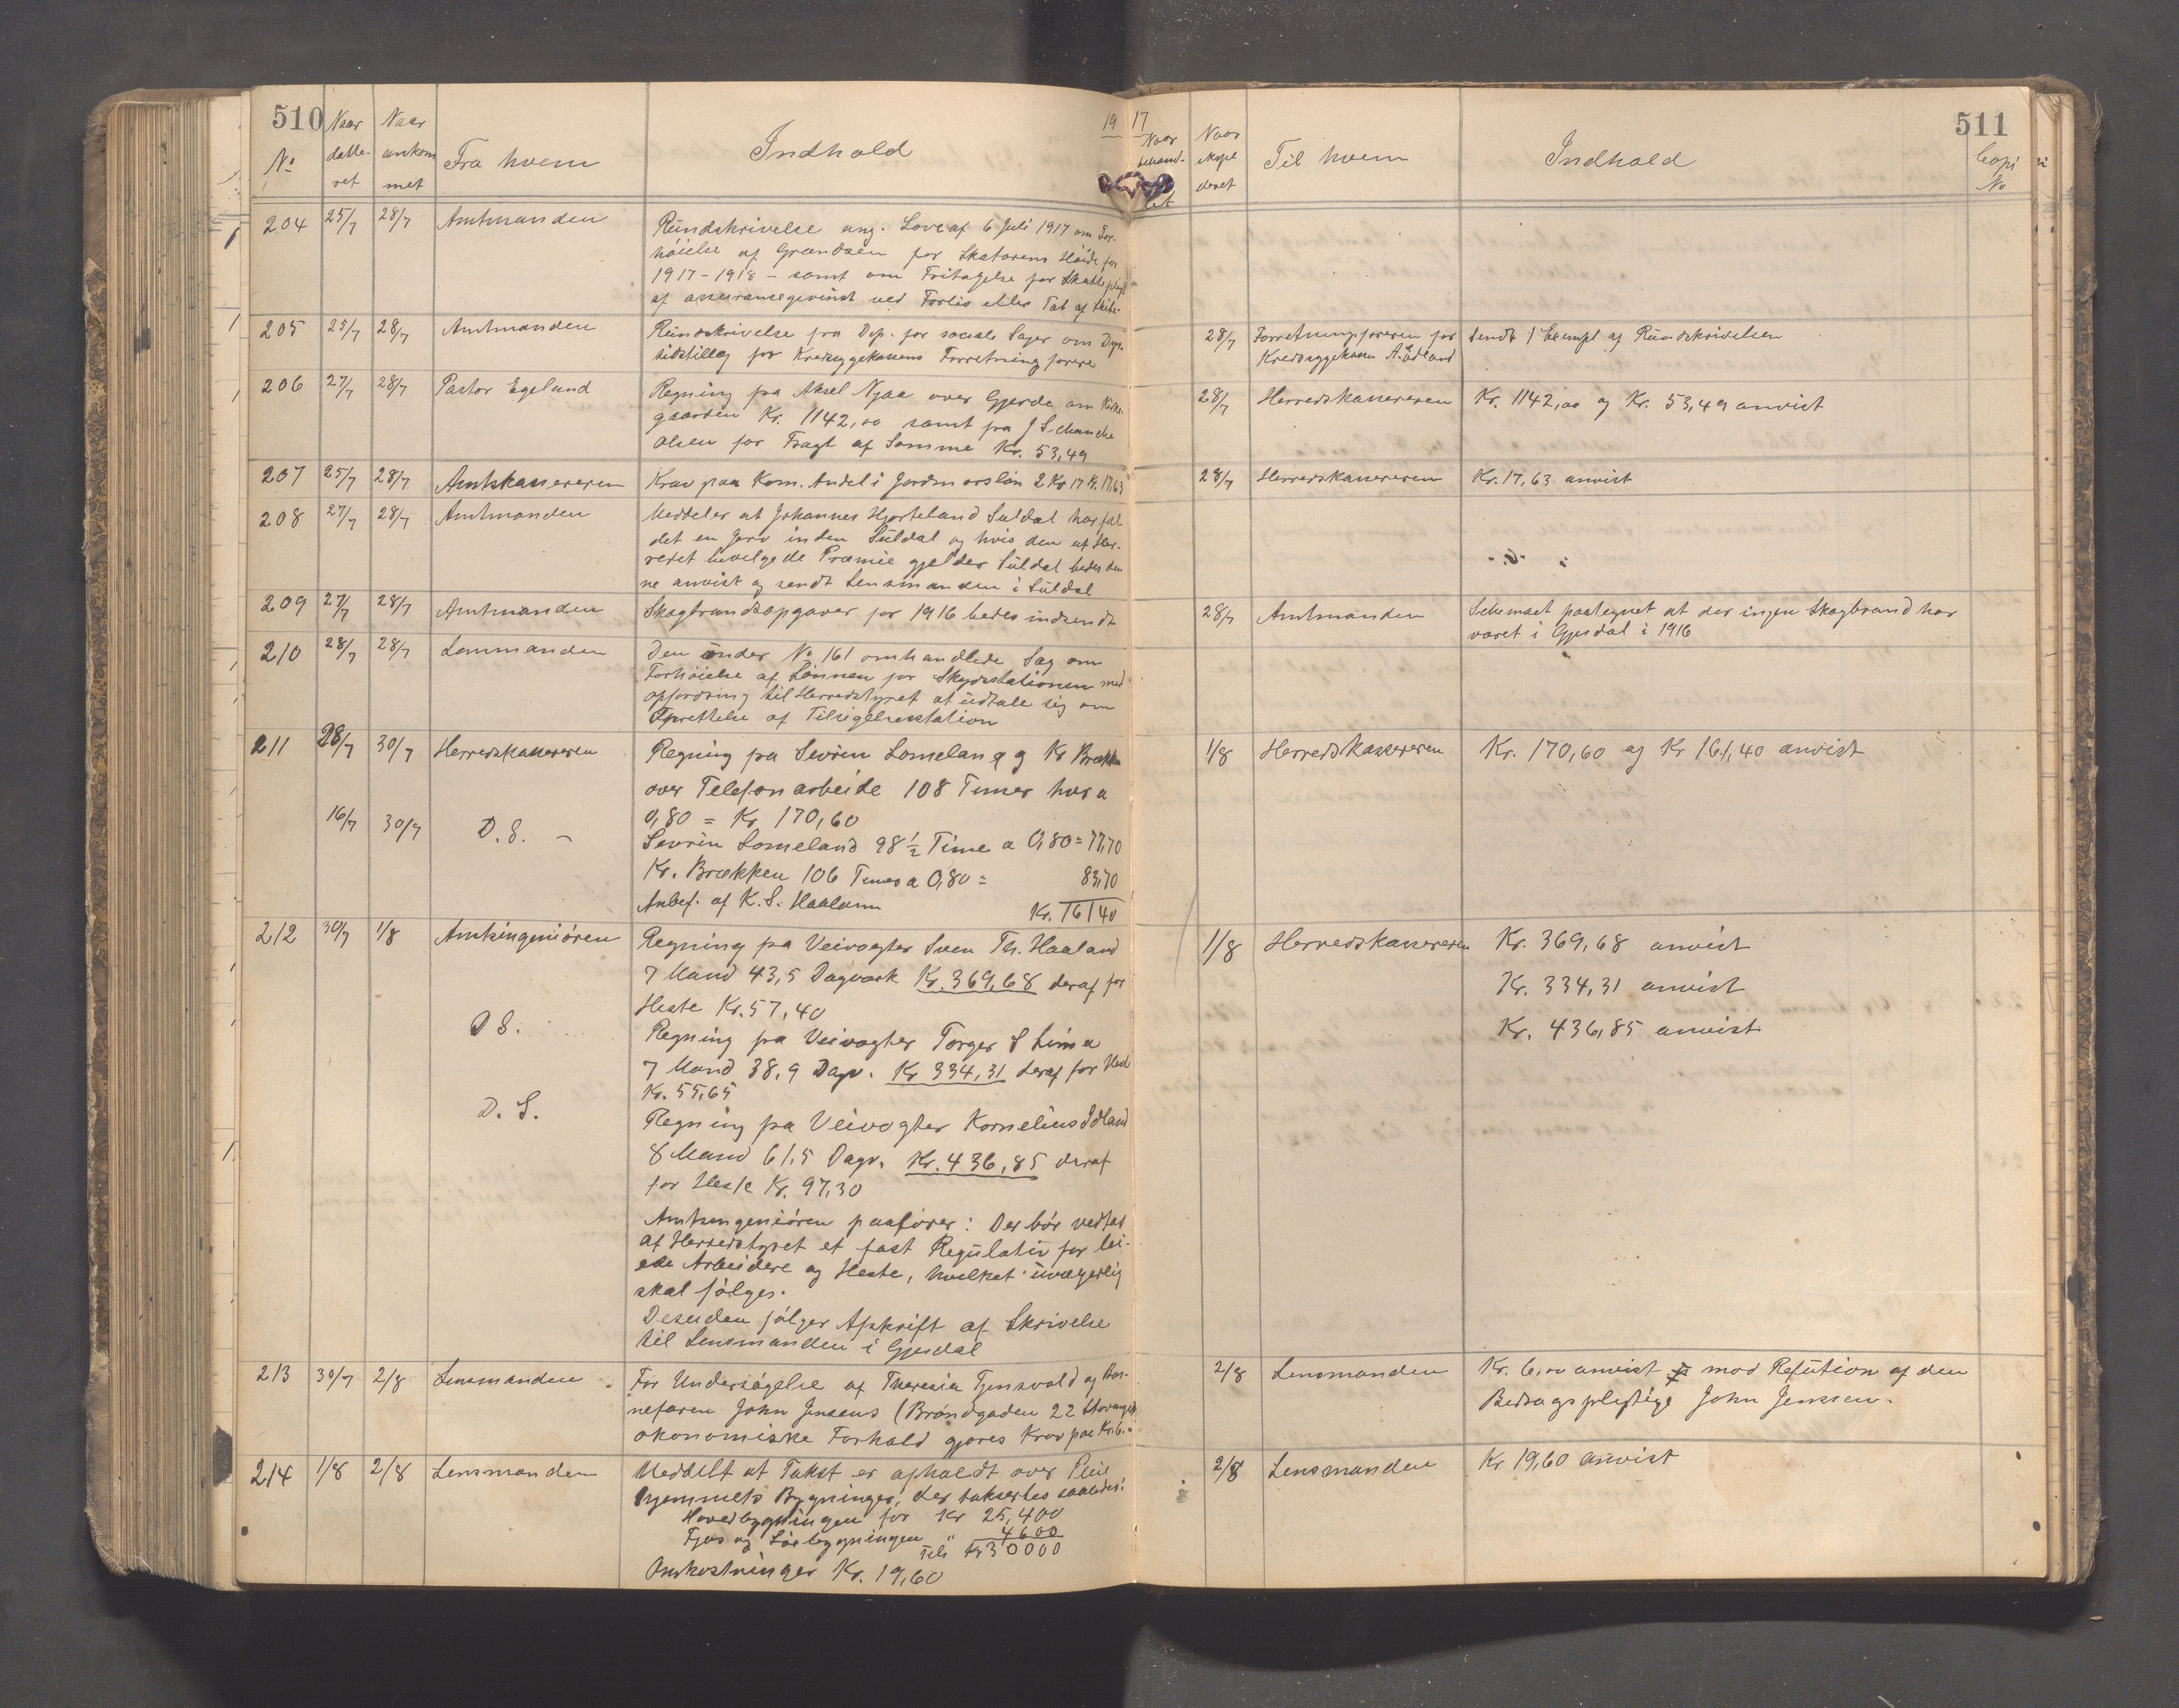 510
19 17
511
No
Naar datte- ret
Naar ankom met
Fra hvem
Indhold
Naar behand- let
Naar expe deret
Til hvem
Indhold
Copi No
204 25/7 28/7 Amtmanden Rundskrivelse ang. Love af 6 Juli 1917 om For-
høielse af Grændsen for Skatørens Høide for
1917-1918 - samt om Fritagelse for Skattepligt
af assuransegevinst ved Forlis eller Tab af Skibe.
205 25/7 28/7 Amtmanden Rundskrivelse fra Dep. for sociale Sager om Dyr-
tidstillæg for Kredssygekassens Forretningsførere
28/7 Forretningsføreren for Sendt 1 Exempl af Rundskrivelsen
Kredssygekassen A. Edland
206 27/7 28/7 Pastor Egeland Regning fra Aksel Njaa over Gjerde om Kirke-
gaarden Kr. 1142,00 samt fra J S.
Olsen for Fragt af Samme Kr. 53,49
28/7 Herredskassereren Kr. 1142,00 og Kr. 53,49 anvist
207 25/7 28/7 Amtskassereren Krav paa Kom. Andel i Jordmorsløn 2 Kv 17 Kr. 17,63
28/7 Herredskassereren Kr. 17,63 anvist
208 27/7 28/7 Amtmanden Meddeler at Johannes Hjorteland Suldal har fæl-
det en Jerv inden Suldal og hvis den af Her-
redet bevilgede Præmie gjelder Suldal bedes den
ne anvist og sendt Lensmanden i Suldal
209 27/7 28/7 Amtmanden Skogbrandsopgaver for 1916 bedes indsendt
28/7 Amtmanden Schemaet paategnet at der ingen Skogbrand har
været i Gjesdal i 1916
210 28/7 28/7 Lensmanden Den under No 161 omhandlede Sag om
Forhøielse af Lønnen for Skydsstationen med
opfordring til Herredstyret at udtale sig om
Oprettelse af Tilsigelsesstation
211 28/7 30/7 Herredskassereren Regning fra Sevrin Lomeland og Kr Brækken
over Telefonarbeide 108 Timer hver a
0,80 = Kr 170,60
1/8 Herredskassereren Kr. 170,60 og Kr 161,40 anvist
16/7 30/7 D.S. - Sevrin Lomeland 98 1/2 Time a 0,80 = 77,70
Kr. Brækken 106 Timer a 0,80 = 83,70
Anbef. af K. S. Haaland Kr. 161 40
212 30/7 1/8 Amtsingeniøren Regning fra Veivogter Sven Th. Haaland
7 Mand 43,5 Dagverk Kr. 369,68 deraf for
Heste Kr. 57,40
1/8 Herredskassereren Kr. 369,68 anvist
Kr. 334,31 anvist
Kr. 436,85 anvist
D S. Regning fra Veivogter Torger S Lima
7 Mand 38,9 Dagv. Kr 334,31 deraf for Hest
Kr. 55,65
D. S. Regning fra Veivogter Kornelius Idland
8 Mand 61,5 Dagv. Kr. 436,85 deraf
for Heste Kr. 97,30
Amtsingeniøren paafører: Der bør vedtas
af Herredstyret et fast Regulativ for lei-
ede Arbeidere og Heste, hvilket uvægerlig
skal følges.
Desuden følger Afskrift af Skrivelse
til Lensmanden i Gjesdal
213 30/7 2/8 Lensmanden For Undersøgelse af Theresia Tjensvold og Bar-
nefaren John Jensens (Brøndgaden 22 Stavanger)
økonomiske Forhold gjøres Krav paa Kr. 6.-
2/8 Lensmanden Kr. 6,00 anvist mod Refution af den
Bidragspligtige John Jenssen.
214 1/8 2/8 Lensmanden Meddelt at Takst er afholdt over Pleie
hjemmets Bygninger, der takseertes saaledes:
Hovedbygningen for Kr 25,400
Fjøs og Løebygningen " 4600
Tils Kr 30000
Omkostninger Kr. 19,60
2/8 Lensmanden Kr 19,60 anvist